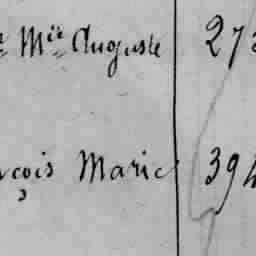 Mie Auguste 273
çois Marie 394